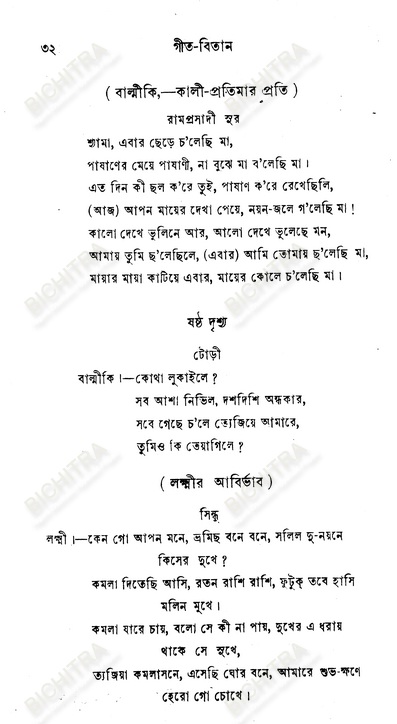 ৩২ গীত-বিতান
( বাল্মীকি,—কালী-প্রতিমার প্রতি )
রামপ্রসাদী সুর
শ্যামা, এবার ছেড়ে চ'লেছি মা,
পাষাণের মেয়ে পাষাণী, না বুঝে মা ব'লেছি মা।
এত দিন কী ছল ক'রে তুই, পাষাণ ক'রে রেখেছিলি,
(আজ) আপন মায়ের দেখা পেয়ে, নয়ন-জলে গ'লেছি মা!
কালো দেখে ভুলিনে আর, আলো দেখে ভুলেছে মন,
আমায় তুমি ছ'লেছিলে, (এবার) আমি তোমায় ছ'লেছি মা,
মায়ার মায়া কাটিয়ে এবার, মায়ের কোলে চ'লেছি মা।
ষষ্ঠ দৃশ্য
টোড়ী
বাল্মীকি।—কোথা লুকাইলে?
সব আশা নিভিল, দশদিশি অন্ধকার,
সবে গেছে চ'লে ত্যেজিয়ে আমারে,
তুমিও কি তেয়াগিলে?
( লক্ষ্মীর আবির্ভাব )
সিন্ধু
লক্ষ্মী।—কেন গো আপন মনে, ভ্রমিছ বনে বনে, সলিল দু-নয়নে
কিসের দুখে?
কমলা দিতেছি আসি, রতন রাশি রাশি, ফুটুক্ তবে হাসি
মলিন মুখে।
কমলা যারে চায়, বলো সে কী না পায়, দুখের এ ধরায়
থাকে সে সুখে,
ত্যজিয়া কমলাসনে, এসেছি ঘোর বনে, আমারে শুভ-ক্ষণে
হেরো গো চোখে।
BICHITRA
BICHITRA
BICHITRA
BICHITRA
BICHITRA
BICHITRA